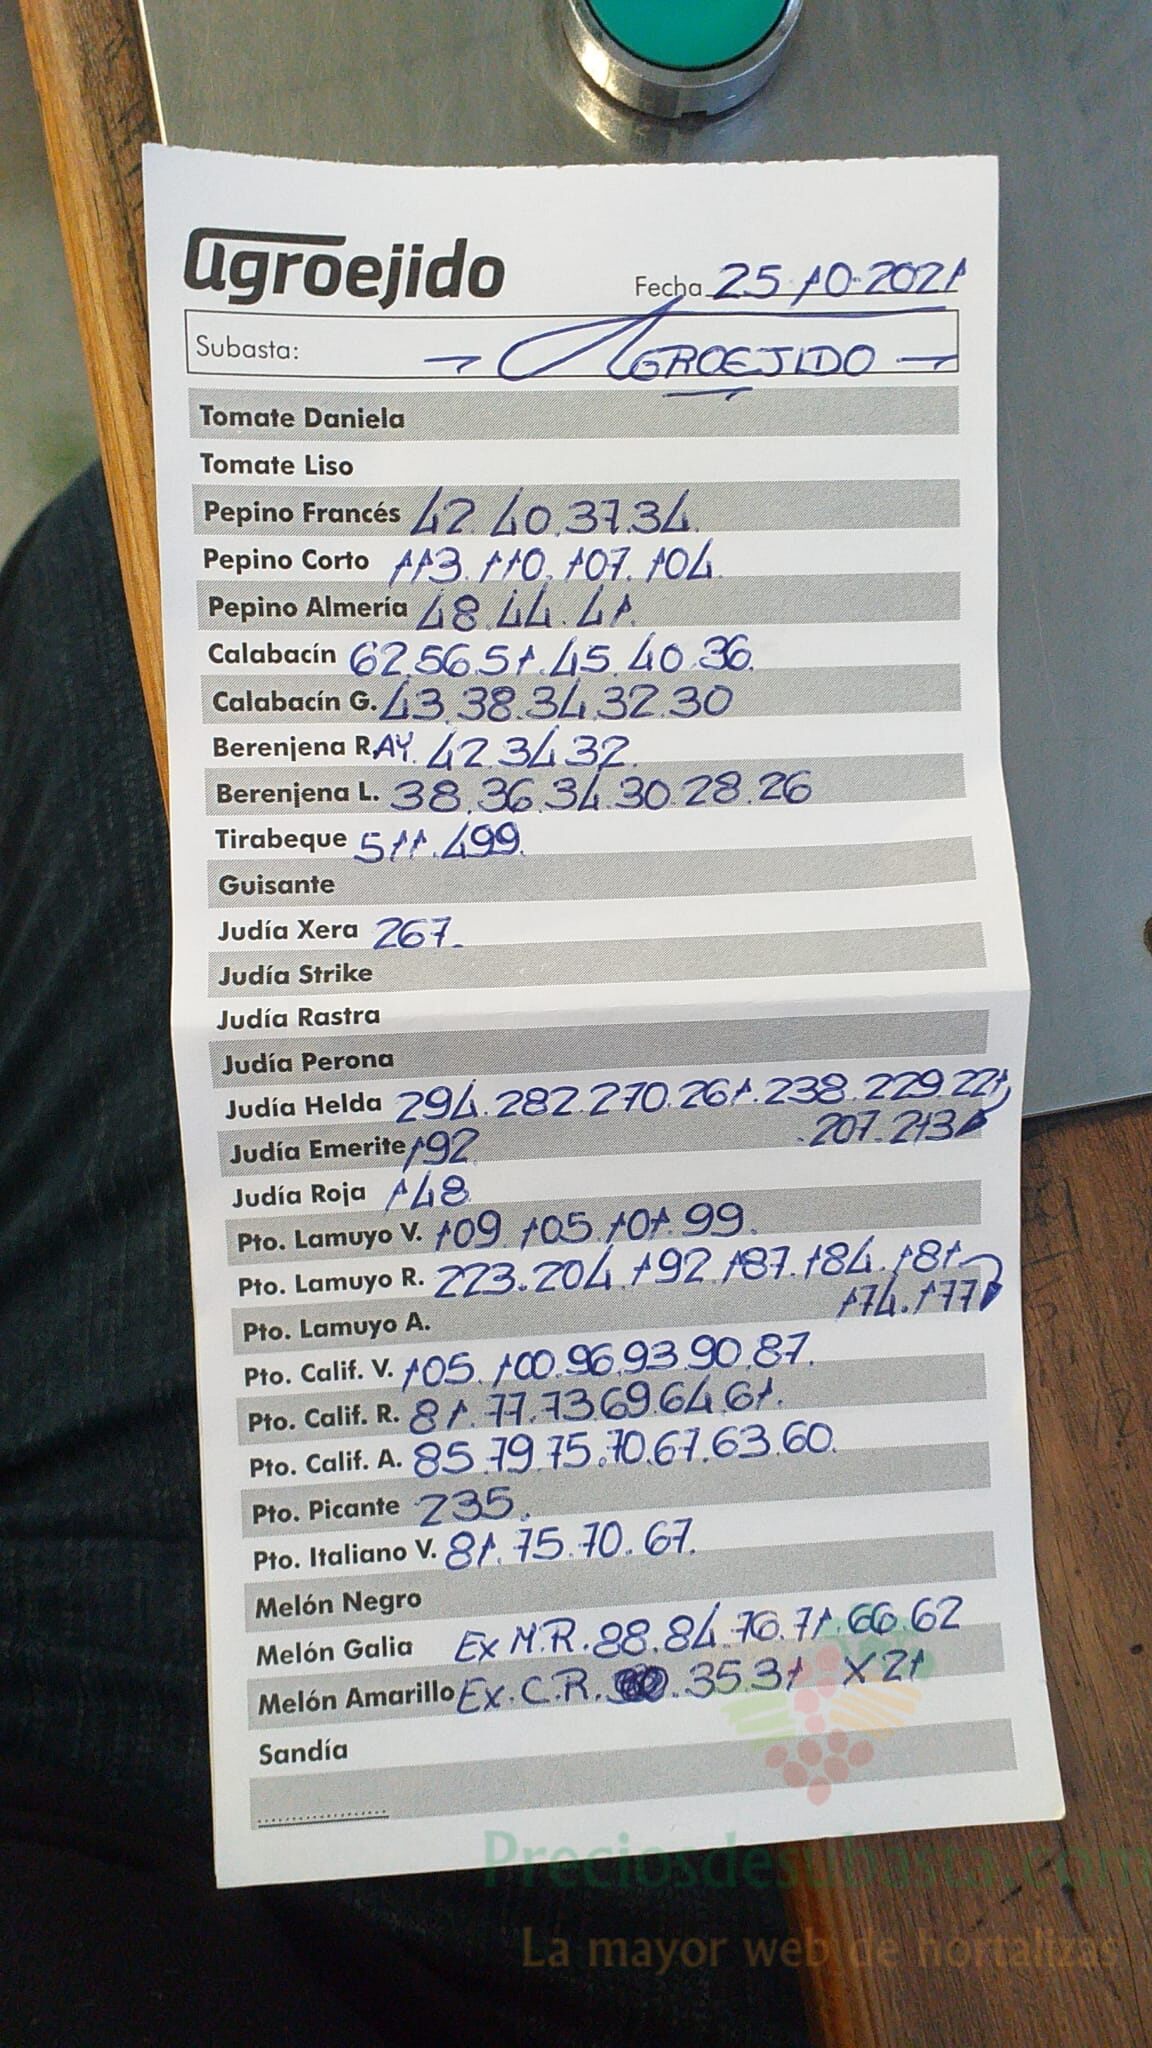 agroejido
Fecha 25-10-2021
Subasta: → AGROEJIDO →
Tomate Daniela
Tomate Liso
Pepino Francés 42.40.37.34.
Pepino Corto 113.110.107.104.
Pepino Almería 48.44.41.
Calabacín 62.56.51.45.40.36.
Calabacín G. 43.38.34.32.30
Berenjena RAY. 42.34.32.
Berenjena L. 38.36.34.30.28.26
Tirabeque 511.499.
Guisante
Judía Xera 267.
Judía Strike
Judía Rastra
Judía Perona
Judía Helda 294.282.270.261.238.229.221
.207.213
Judía Emerite 192
Judía Roja 148
Pto. Lamuyo V. 109.105.101.99.
Pto. Lamuyo R. 223.204.192.187.184.181
174.177
Pto. Lamuyo A.
Pto. Calif. V. 105.100.96.93.90.87.
Pto. Calif. R. 81.77.73.69.64.61.
Pto. Calif. A. 85.79.75.70.67.63.60.
Pto. Picante 235.
Pto. Italiano V. 81.75.70.67.
Melón Negro
Melón Galia Ex M.R.88.84.76.71.66.62
Melón Amarillo Ex.C.R. .35.31 X 21
Sandía
Preciosdesubasta.com
La mayor web de hortalizas